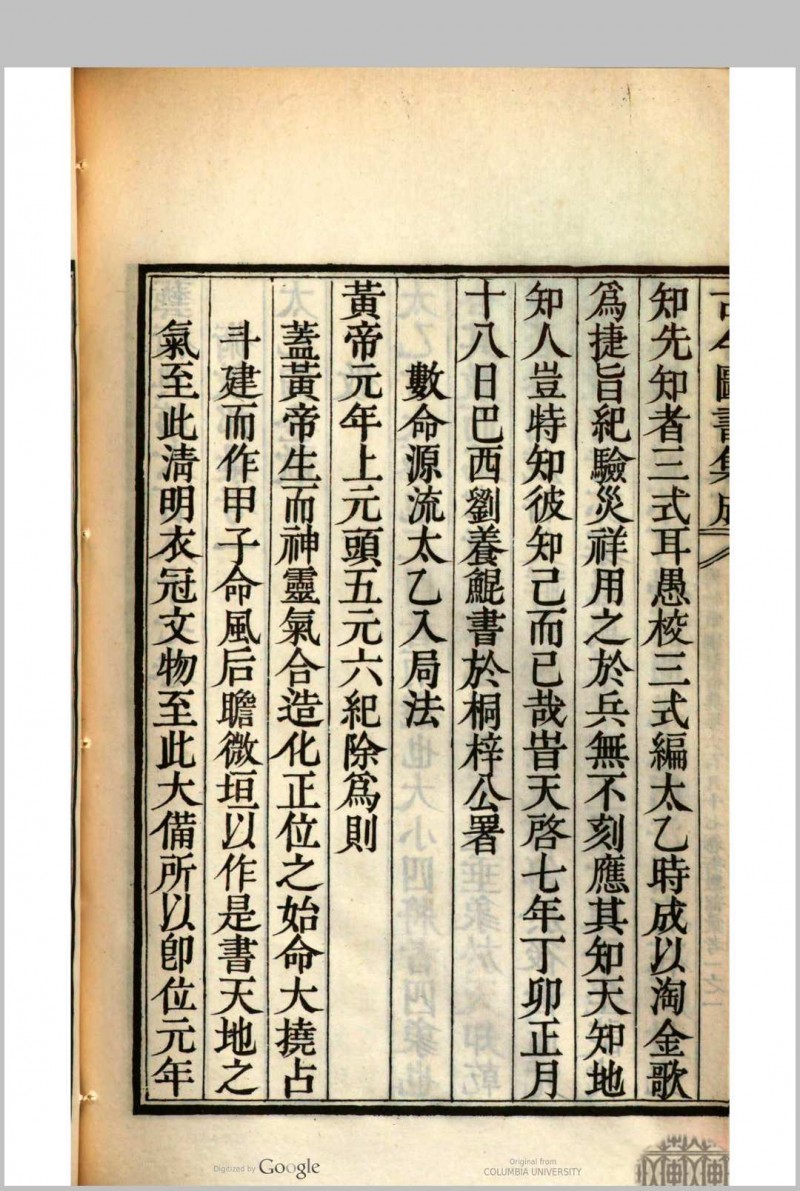 古今圖書集成
知先知者三式耳愚校三式編太乙時成以淘金歌
爲捷旨紀驗災祥用之於兵無不刻應其知天知地
知人豈特知彼知己而已哉旹天啓七年丁卯正月
十八日巴西劉養鯤書於桐梓公署
數命源流太乙入局法
黃帝元年上元頭五元六紀除爲則
蓋黃帝生而神靈氣合造化正位之始命大撓占
斗建而作甲子命風后瞻微垣以作是書天地之
氣至此淸明衣冠文物至此大備所以卽位元年
Digitized by Google
Original from
COLUMBIA UNIVERSITY